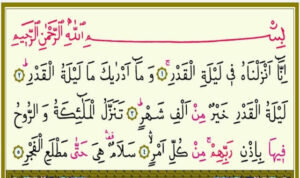 بِسْمِ اللّٰهِ الرَّحْمٰنِ الرَّحِیْمِ
اِنَّاۤ اَنْزَلْنَاهُ فِیْ لَیْلَةِ الْقَدْرِ ۚ﴿۱﴾ وَ مَاۤ اَدْرٰیكَ مَا لَیْلَةُ الْقَدْرِ ؕ﴿۲﴾
لَیْلَةُ الْقَدْرِ خَیْرٌ مِنْ اَلْفِ شَهْرٍ ؕ﴿۳﴾ تَنَزَّلُ الْمَلٰٓئِكَةُ وَ الرُّوْحُ
فِیْهَا بِاِذْنِ رَبِّهِمْ ۚ مِنْ كُلِّ اَمْرٍ ۙ﴿۴﴾ سَلَامٌ هِیَ حَتّٰی مَطْلَعِ الْفَجْرِ ﴿۵﴾